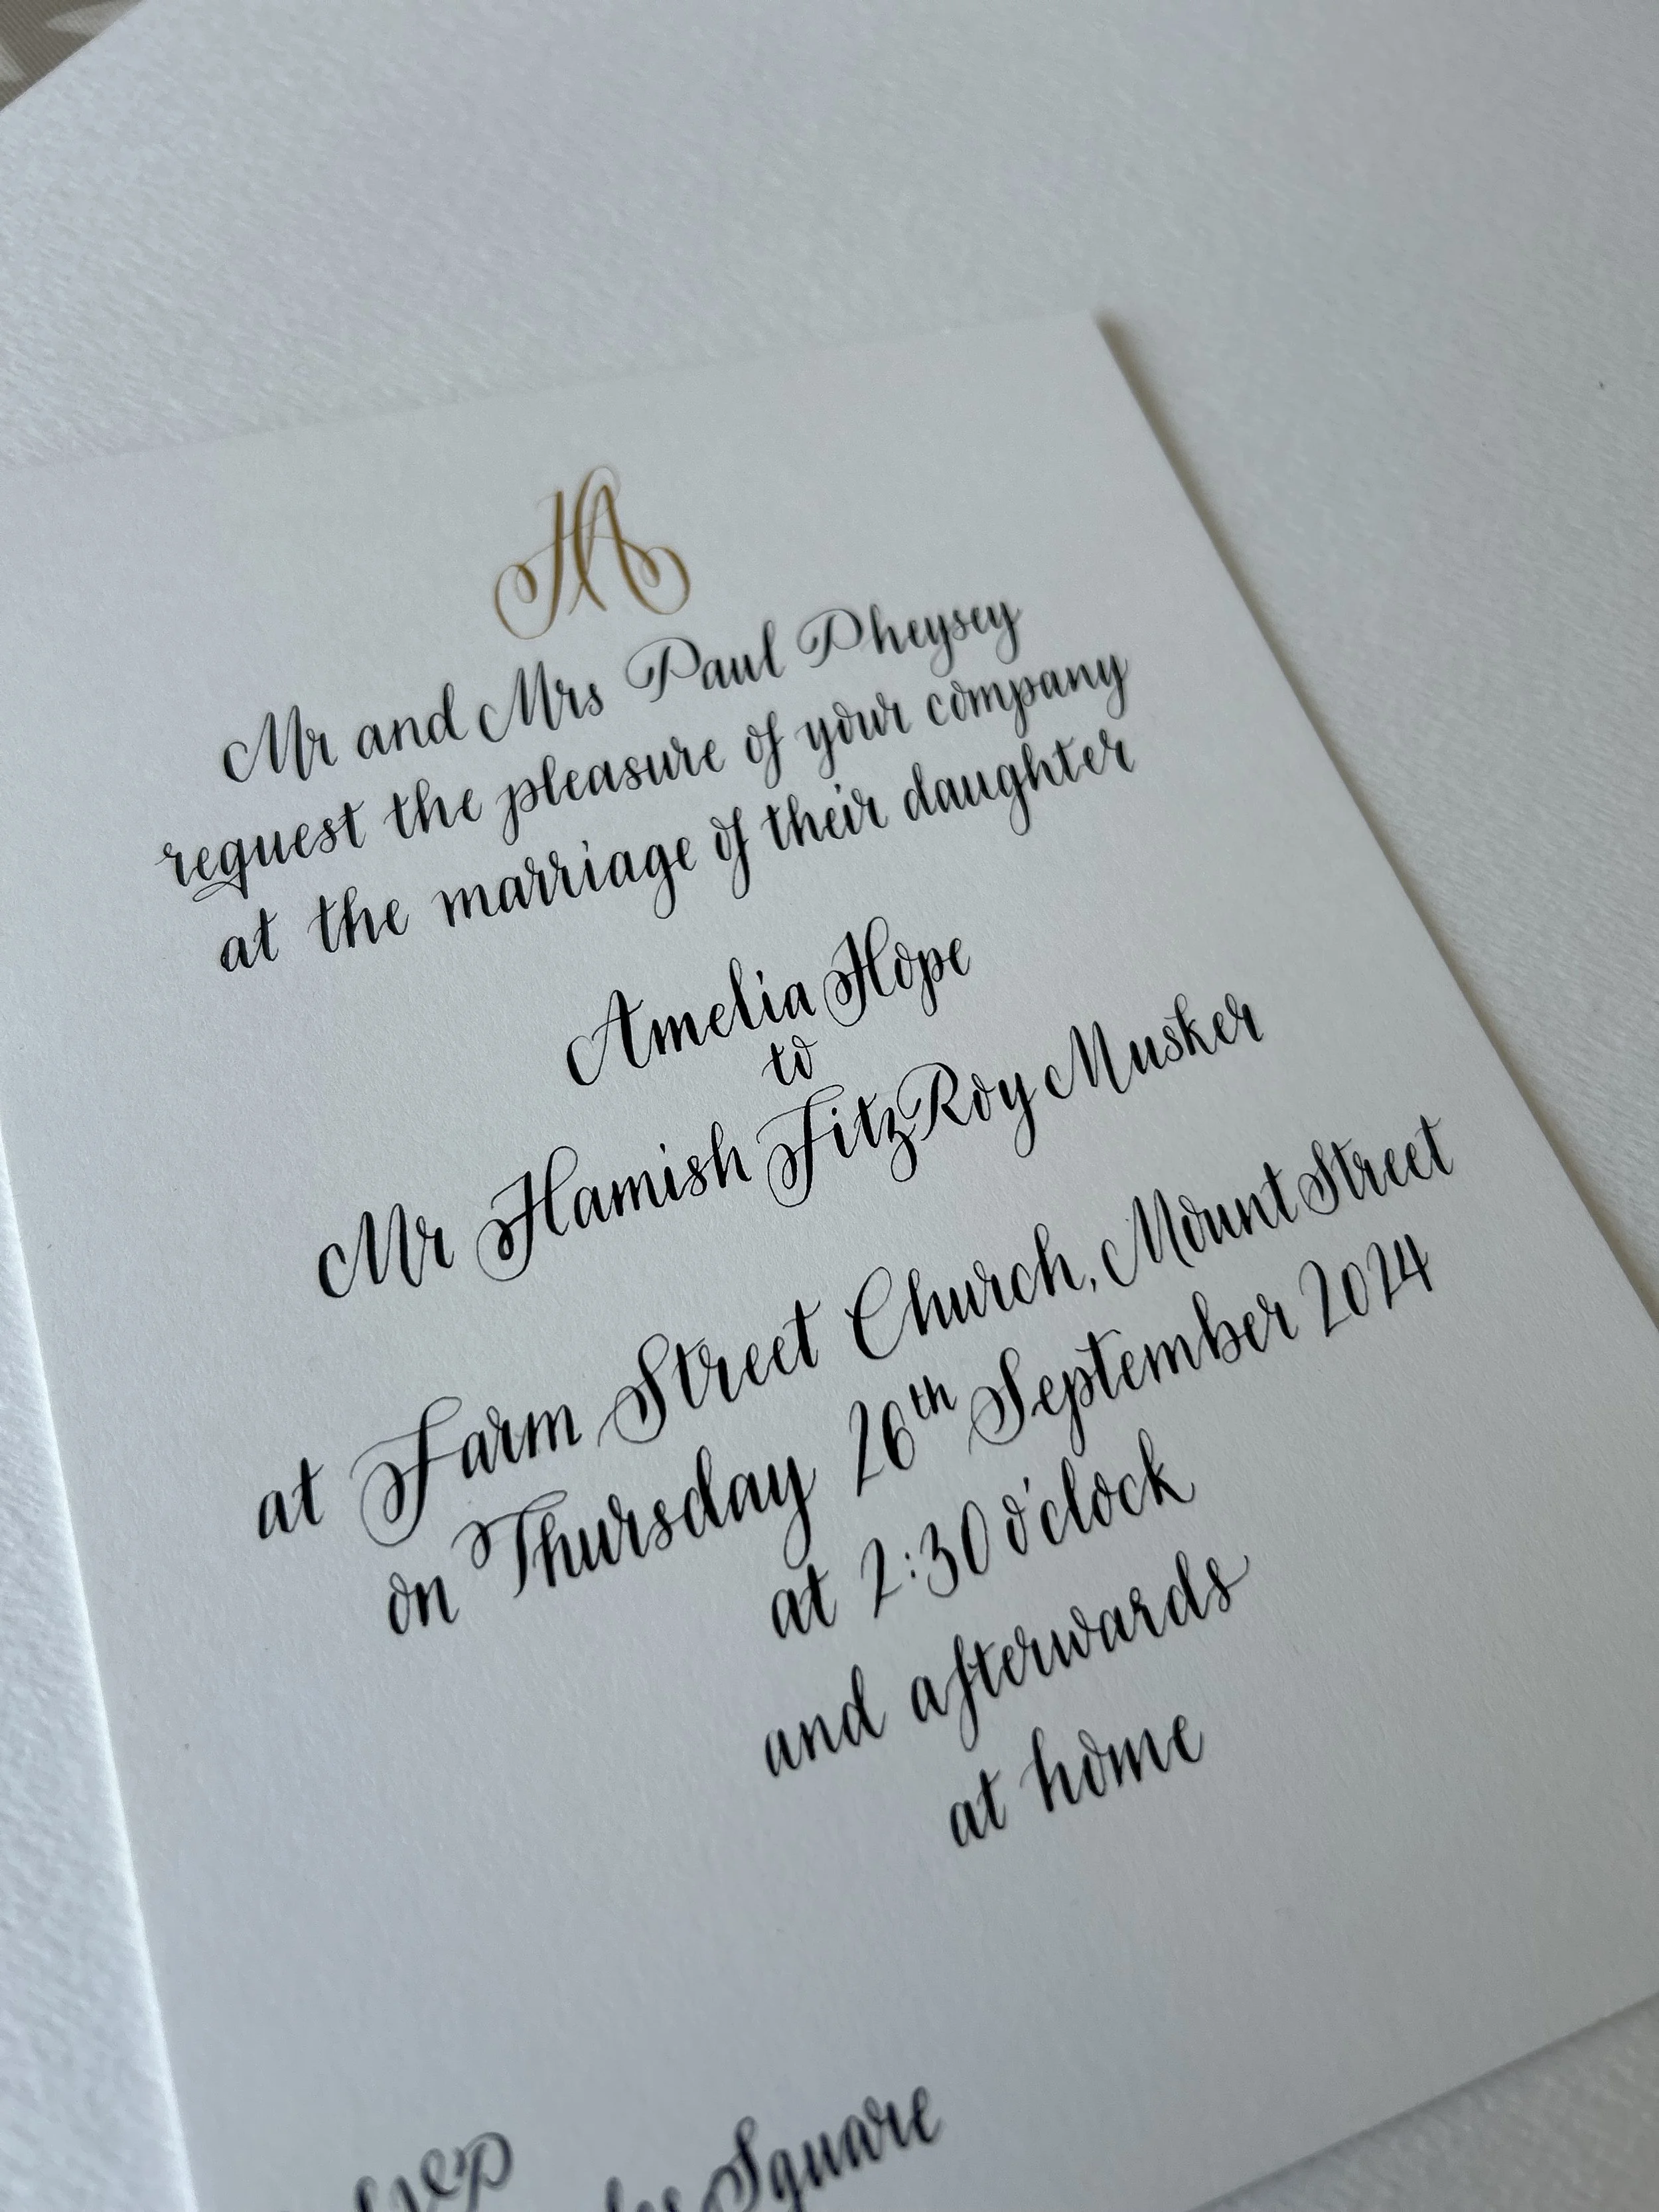 HA
Mr and Mrs Paul Pheysey
request the pleasure of your company
at the marriage of their daughter
Amelia Hope
to
Mr Hamish FitzRoy Musker
at Farm Street Church, Mount Street
on Thursday 26th September 2024
at 2:30 o'clock
and afterwards
at home
Square